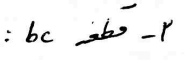 ۳- قطعه bc :